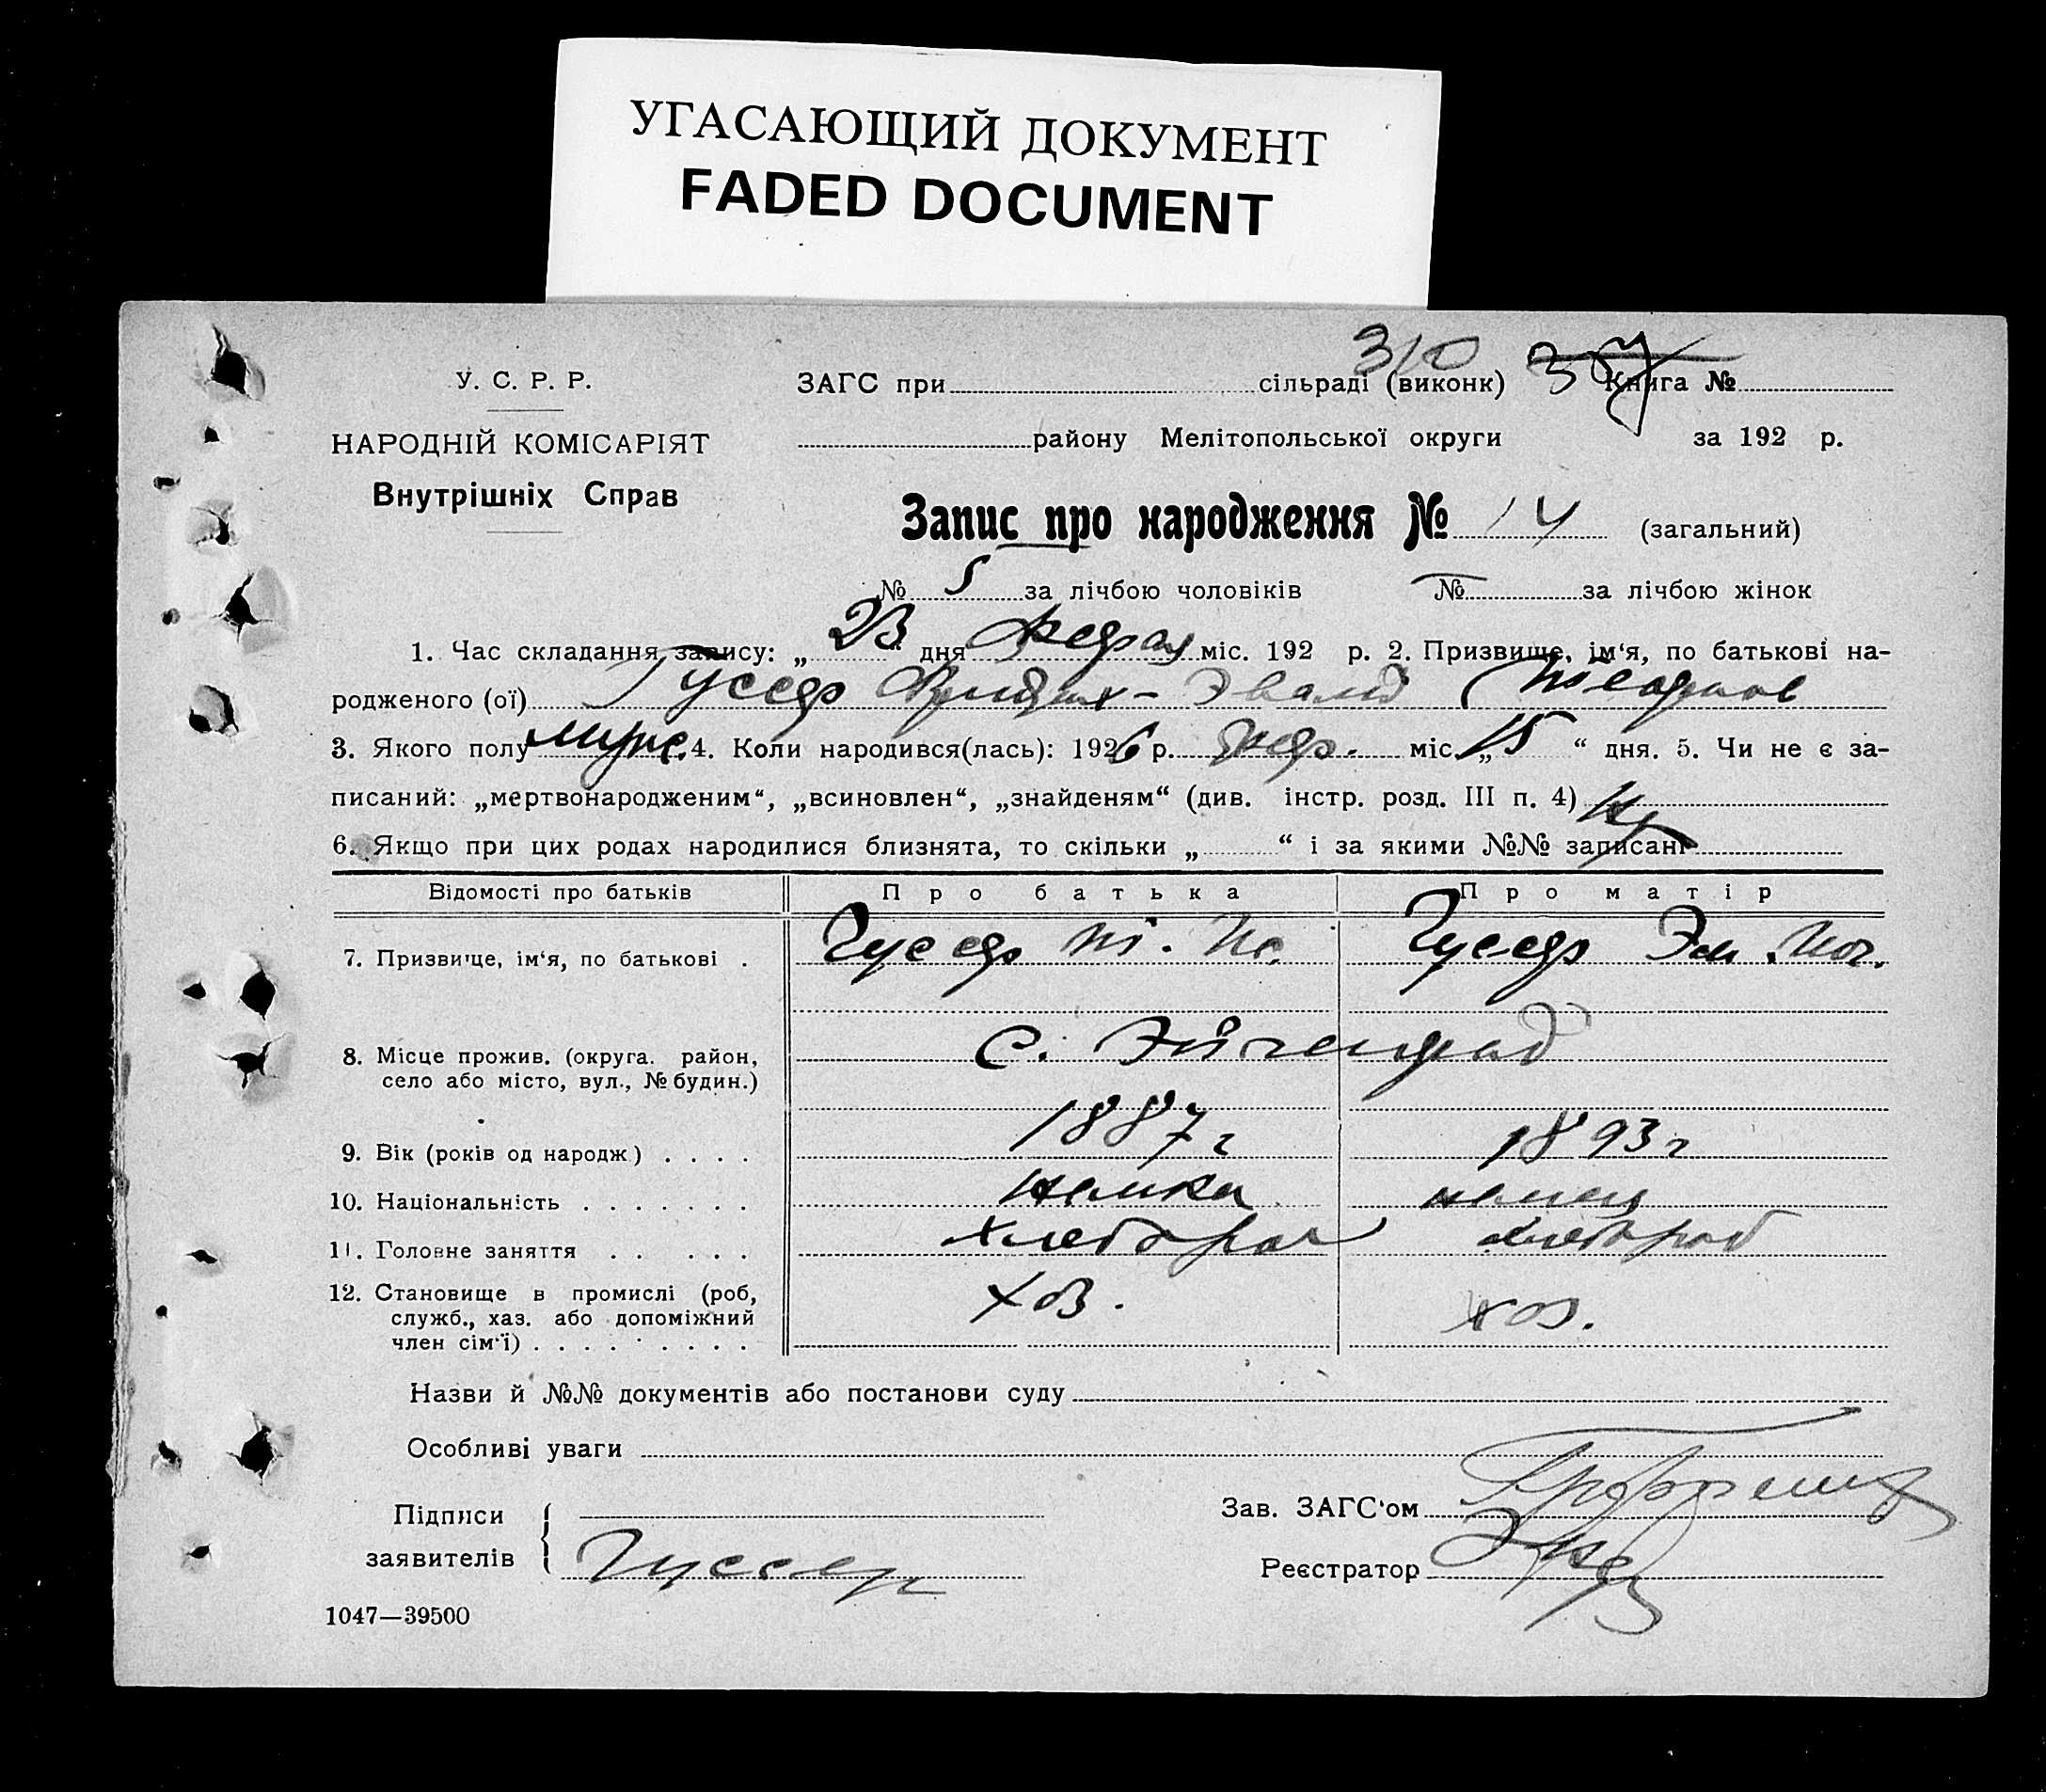 УГАСАЮЩИЙ ДОКУМЕНТ
FADED DOCUMENT
310 37
У. С. Р. Р.
ЗАГС при сільраді (виконк) Книга №
НАРОДНІЙ КОМІСАРІЯТ
району Мелітопольської округи за 192 р.
Внутрішніх Справ
Запис про народження № 14 (загальний)
№ 5 за лічбою чоловіків № за лічбою жінок
1. Час складання запису: „23“ дня міс. 192 р. 2. Призвище, ім‘я, по батькові на-
родженого (ої) Гуссер Эвальд
3. Якого полу муж. 4. Коли народився(лась): 1926 р. міс. „15“ дня. 5. Чи не є за-
писаний: „мертвонародженим“, „всиновлен“, „знайденям“ (див. інстр. розд. III п. 4)
6. Якщо при цих родах народилися близнята, то скільки „ “ і за якими №№ записані
Відомості про батьків Про батька Про матір
7. Призвище, ім‘я, по батькові . Гуссер Гуссер Эм.
8. Місце прожив. (округа. район, село або місто, вул., № будин.) с.
9. Вік (років од народж) . . . . 1887 г 1893 г
10. Національність . . . . . . . немка немец
11. Головне заняття . . . . . хлебороб хлебороб
12. Становище в промислі (роб, служб., хаз. або допоміжний член сім‘ї) . . . . . . . . хоз. хоз.
Назви й №№ документів або постанови суду
Особливі уваги
Підписи заявителів Гуссер
Зав. ЗАГС‘ом
Реєстратор
1047—39500